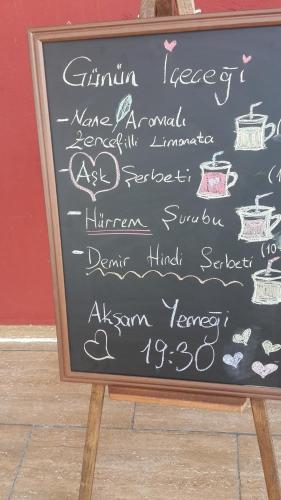 Günün İçeceği
- Nane Aromalı
Zencefilli Limonata
- Aşk Şerbeti (
- Hürrem Şurubu
- Demir Hindi Şerbeti (10
Akşam Yemeği
19:30